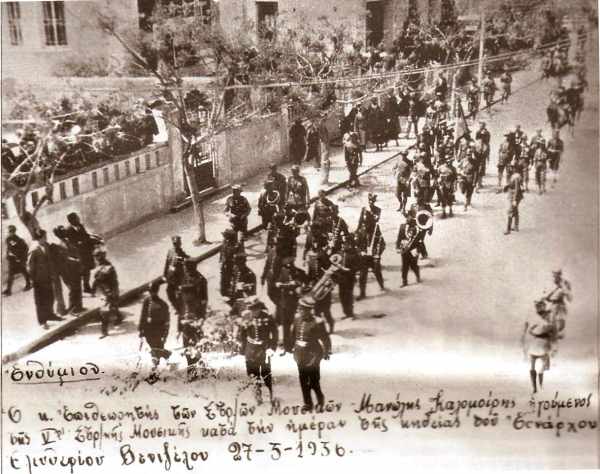 Ἐνθύμιον.
Ὁ κ. Ἐπιθεωρητὴς τῶν Στρ/ῶν Μουσικῶν Μανώλης Καλομοίρης ἡγούμενος
τῆς Vης Στρ/κῆς Μουσικῆς κατὰ τὴν ἡμέραν τῆς κηδείας τοῦ Ἐθνάρχου
Ἐλευθερίου Βενιζέλου 27-3-1936.